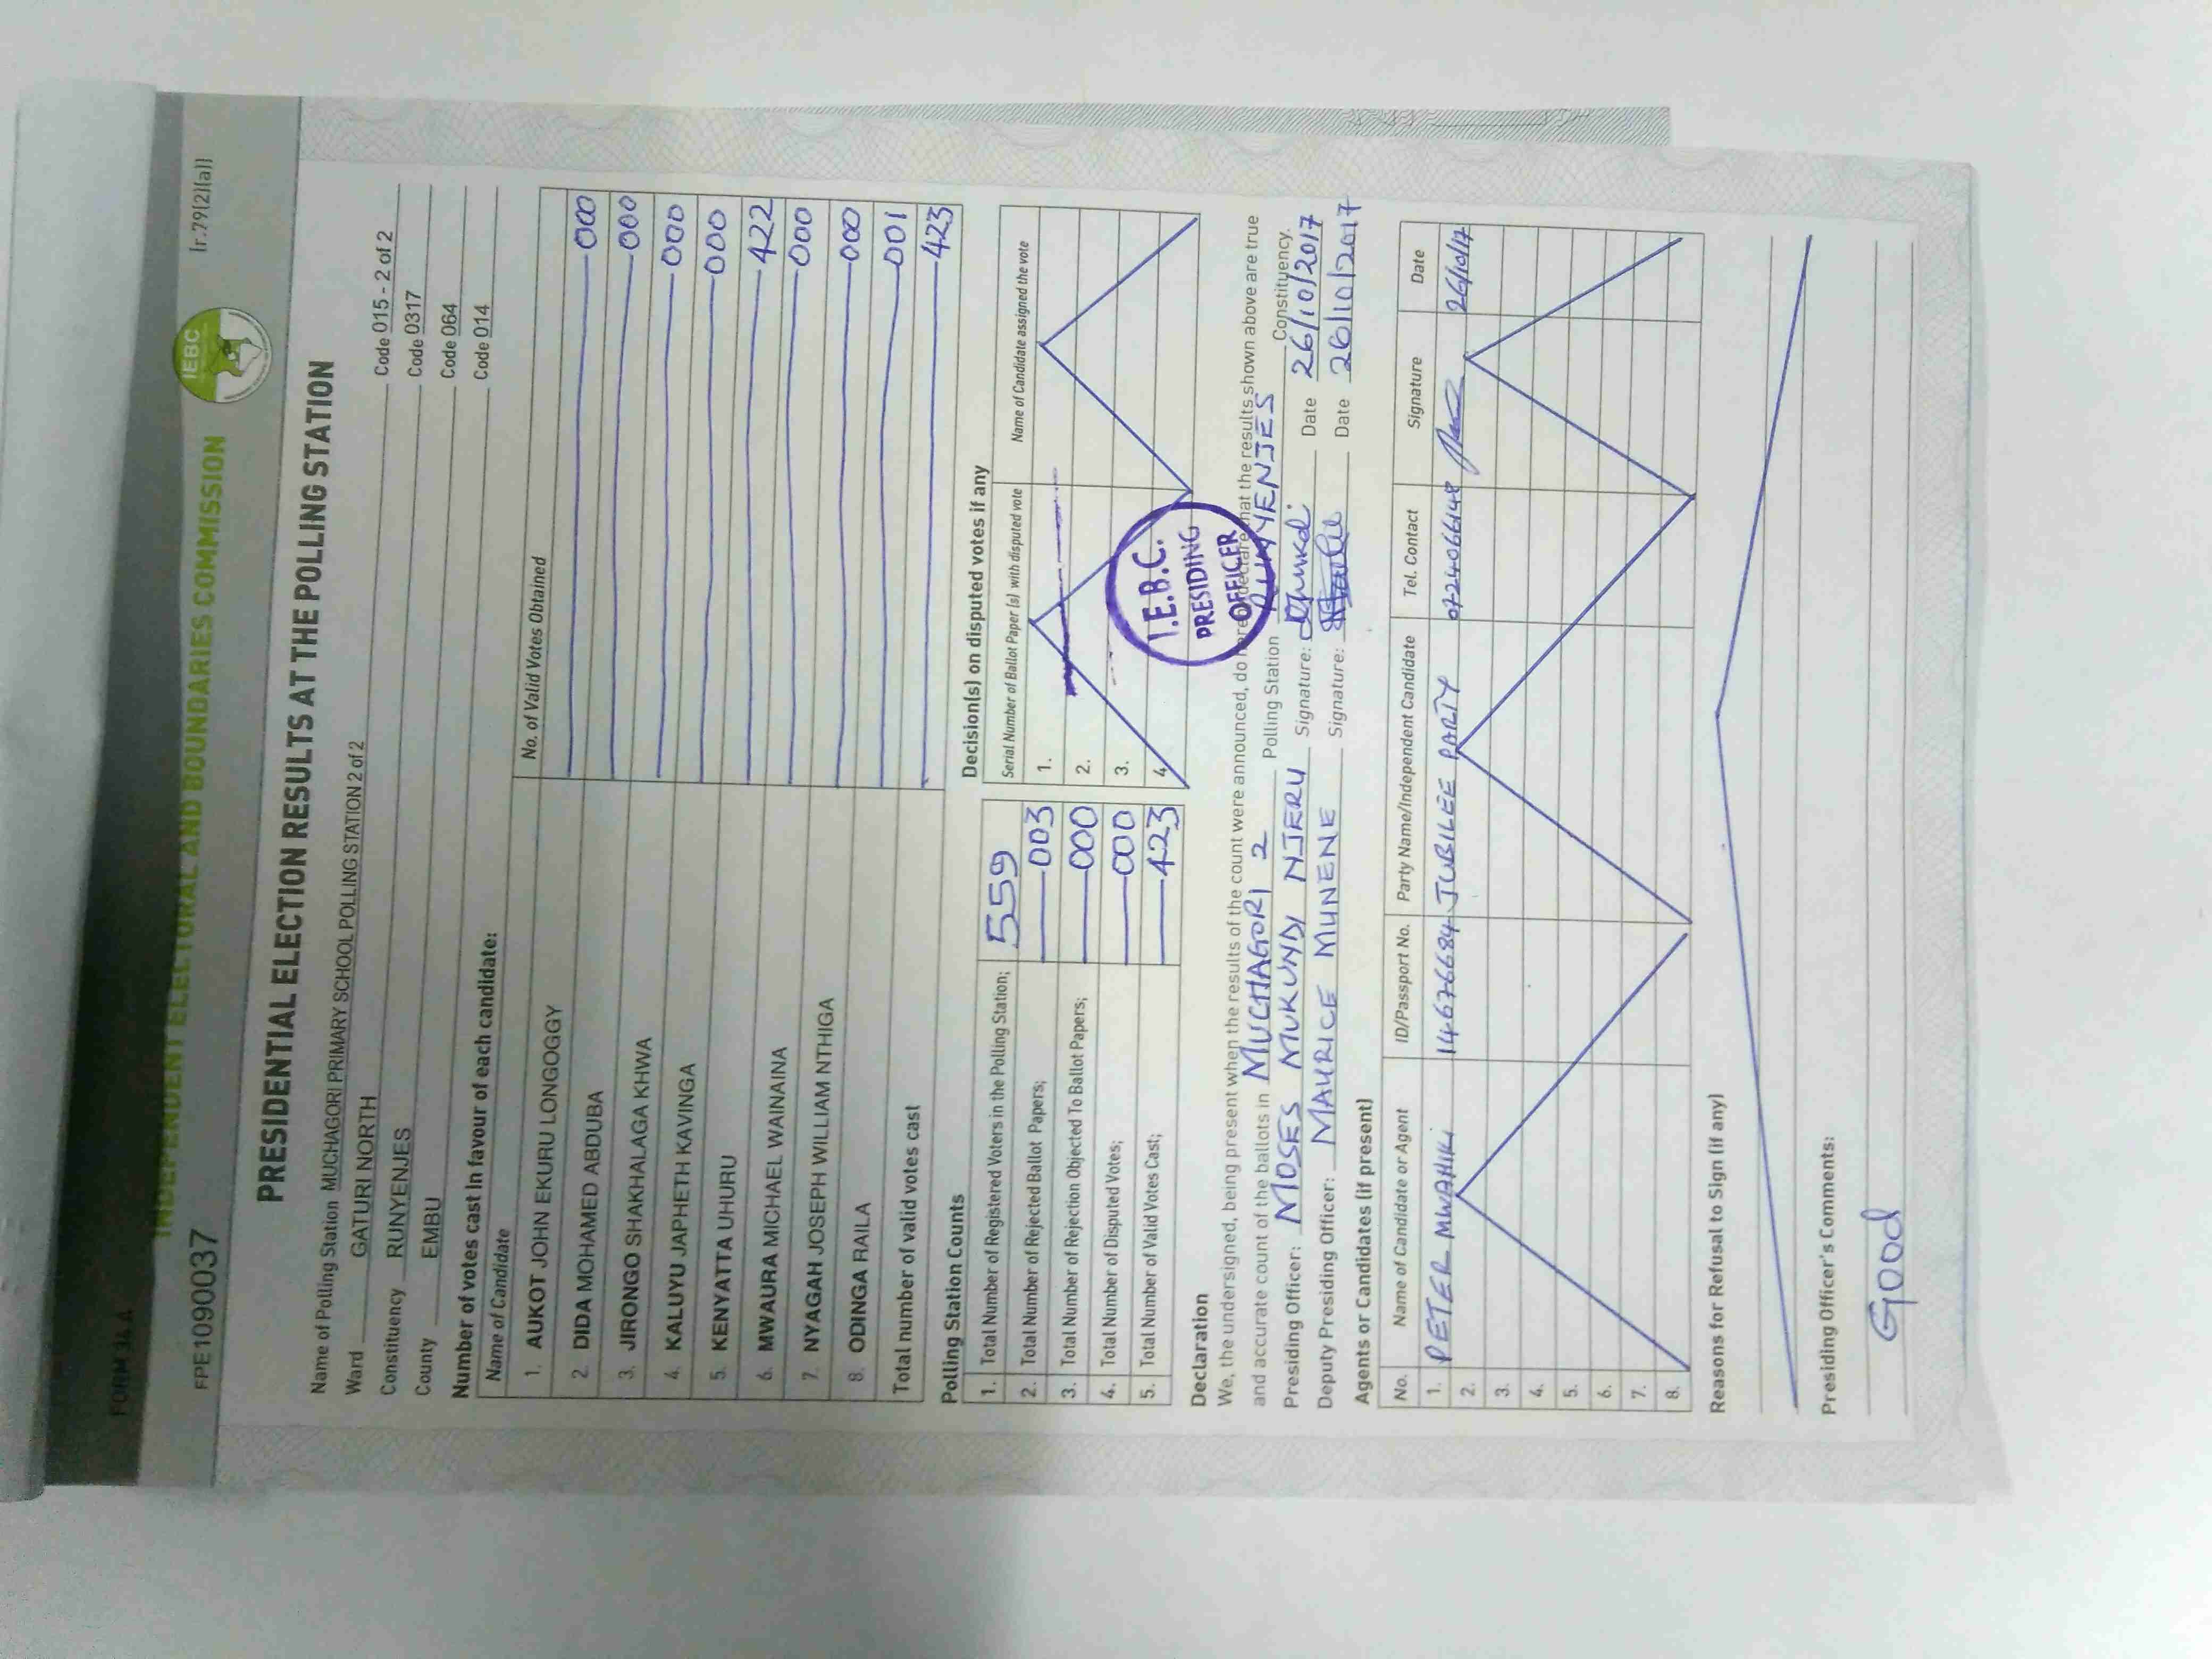 FORM 34 A
INDEPENDENT ELECTORAL AND BOUNDARIES COMMISSION
IEBC
FPE1090037 (r.79(2)(a))
PRESIDENTIAL ELECTION RESULTS AT THE POLLING STATION
Name of Polling Station MUCHAGORI PRIMARY SCHOOL POLLING STATION 2 of 2 Code 015 - 2 of 2
Ward GATURI NORTH Code 0317
Constituency RUNYENJES Code 064
County EMBU Code 014
Number of votes cast in favour of each candidate:
Name of Candidate No. of Valid Votes Obtained
1. AUKOT JOHN EKURU LONGOGGY 000
2. DIDA MOHAMED ABDUBA 000
3. JIRONGO SHAKHALAGA KHWA 000
4. KALUYU JAPHETH KAVINGA 000
5. KENYATTA UHURU 422
6. MWAURA MICHAEL WAINAINA 000
7. NYAGAH JOSEPH WILLIAM NTHIGA 000
8. ODINGA RAILA 001
Total number of valid votes cast 423
Polling Station Counts
1. Total Number of Registered Voters in the Polling Station; 559
2. Total Number of Rejected Ballot Papers; 003
3. Total Number of Rejection Objected To Ballot Papers; 000
4. Total Number of Disputed Votes; 000
5. Total Number of Valid Votes Cast; 423
Decision(s) on disputed votes if any
Serial Number of Ballot Paper (s) with disputed vote Name of Candidate assigned the vote
1.
2.
3.
4.
I.E.B.C.
PRESIDING
OFFICER
Declaration
We, the undersigned, being present when the results of the count were announced, do hereby declare that the results shown above are true
and accurate count of the ballots in MUCHAGORI 2 Polling Station RUNYENJES Constituency.
Presiding Officer: MOSES MUKUNDI NJERU Signature: Date 26/10/2017
Deputy Presiding Officer: MAURICE MUNENE Signature: Date 26/10/2017
Agents or Candidates (if present)
No. Name of Candidate or Agent ID/Passport No. Party Name/Independent Candidate Tel. Contact Signature Date
1. PETER MWANIKI 14676684 JUBILEE PARTY 0724066148 26/10/17
2.
3.
4.
5.
6.
7.
8.
Reasons for Refusal to Sign (if any)
Presiding Officer's Comments:
Good